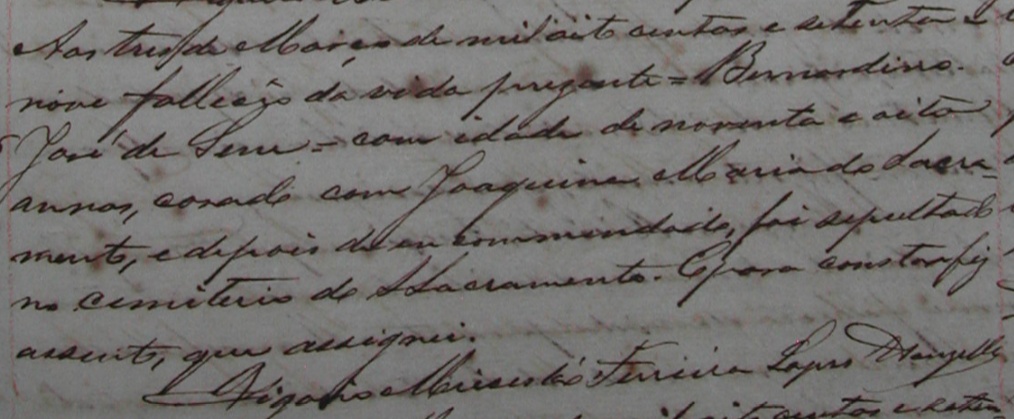 Aos tres de Março de mil oito centos e setenta e
nove falleceo da vida prezente = Bernardino
José de Sene = com idade de noventa e oito
annos, casado com Joaquina Maria do Sacra-
mento, e depois de encommendado, foi sepultado
no cemiterio do Sacramento. E para constar fiz
assento, que assignei.
Vigario Ferreira Lopes